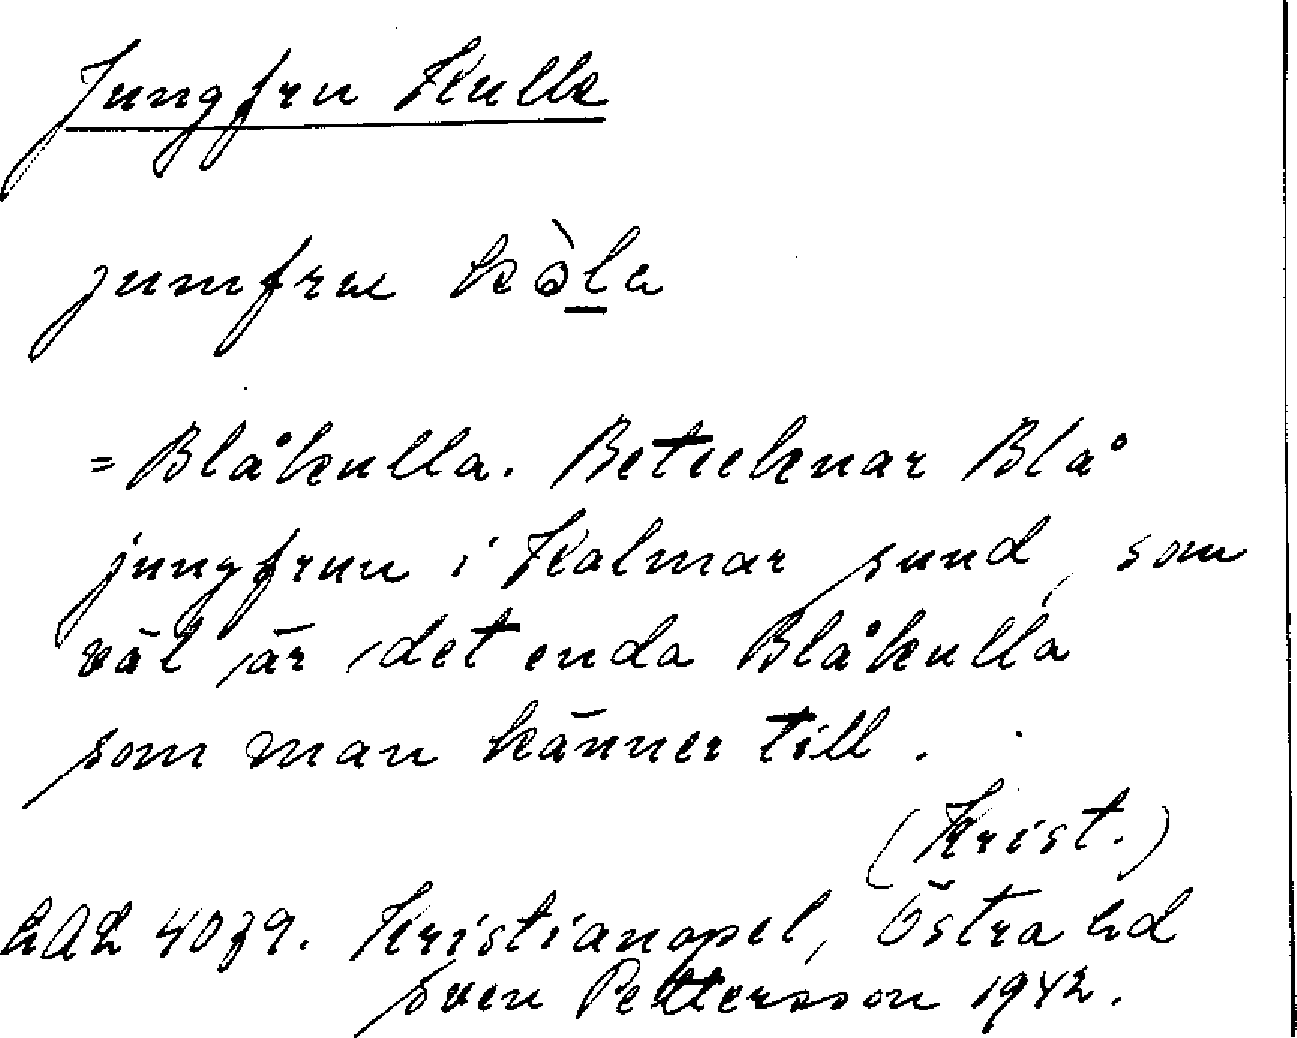 Jungfru Kulle
jumfru kòla
= Blåkulla. Betecknar Blå
jungfrun i Kalmar sund, som
väl är det enda Blåkulla
som man känner till.
(Krist.)
LAL 4079. Kristianopel, Östra hd
Sven Pettersson 1942.